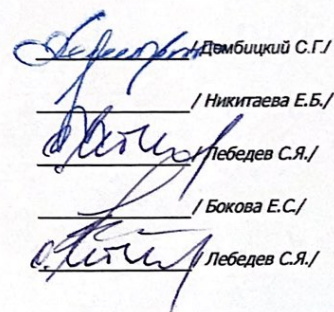 /Дембицкий С.Г./
/ Никитаева Е.Б./
/Лебедев С.Я./
/ Бокова Е.С./
/ Лебедев С.Я./